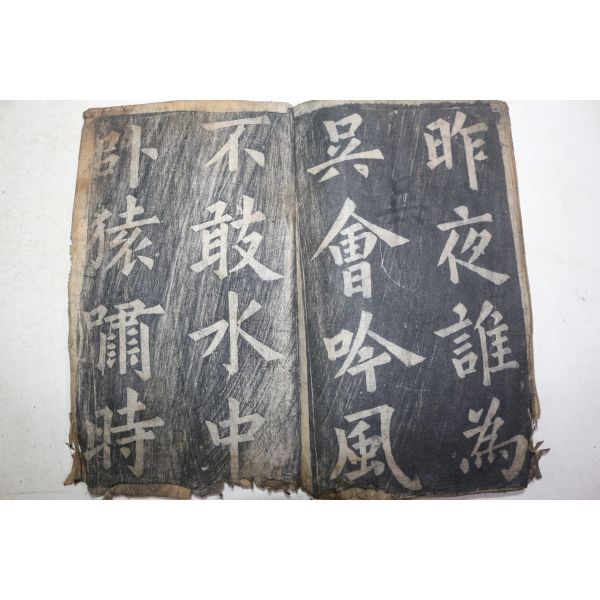 昨夜誰為
呉會吟風
不敢水中
卧猿嘯時